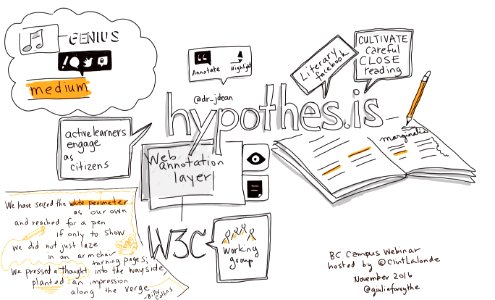 GENIUS
medium
Annotate
Highlight
Literary
facebook
CULTIVATE
careful
CLOSE
reading
@dr_jdean
hypothes.is
marginalia
active learners
engage
as
citizens
Web
annotation
layer
We have seized the white perimeter
as our own
and reached for a pen
if only to show
we did not just laze
in an armchair
turning pages;
We pressed a thought into the wayside,
planted an impression
along the verge.
W3C
working
group
BC Campus Webinar
hosted by @ClintLalonde
November 2016
@giuliaforsythe